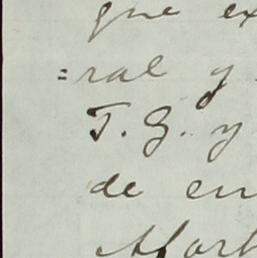 que ex
=ral y
T. G. y
de en
Afort